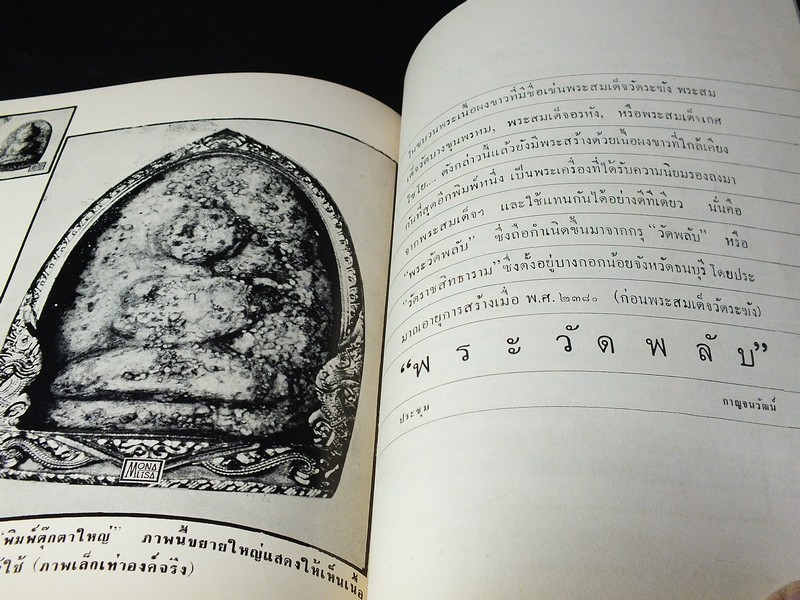 MONA
LISA
"พิมพ์ตุ๊กตาใหญ่" ภาพนี้ขยายใหญ่แสดงให้เห็นเนื้อ
ใช้ (ภาพเล็กเท่าองค์จริง)
ในขบวนพระเนื้อผงขาวที่มีชื่อเช่นพระสมเด็จวัดระฆัง พระสม
เด็จวัดบางขุนพรหม, พระสมเด็จอรหัง, หรือพระสมเด็จเกศ
ไชโย... ดังกล่าวนี้แล้วยังมีพระสร้างด้วยเนื้อผงขาวที่ใกล้เคียง
กันที่สุดอีกพิมพ์หนึ่ง เป็นพระเครื่องที่ได้รับความนิยมรองลงมา
จากพระสมเด็จฯ และใช้แทนกันได้อย่างดีทีเดียว นั่นคือ
"พระวัดพลับ" ซึ่งถือกำเนิดขึ้นมาจากกรุ "วัดพลับ" หรือ
"วัดราชสิทธาราม" ซึ่งตั้งอยู่บางกอกน้อยจังหวัดธนบุรี โดยประ
มาณอายุการสร้างเมื่อ พ.ศ.๒๓๘๐ (ก่อนพระสมเด็จวัดระฆัง)
"พระวัดพลับ"
ประชุม กาญจนวัฒน์